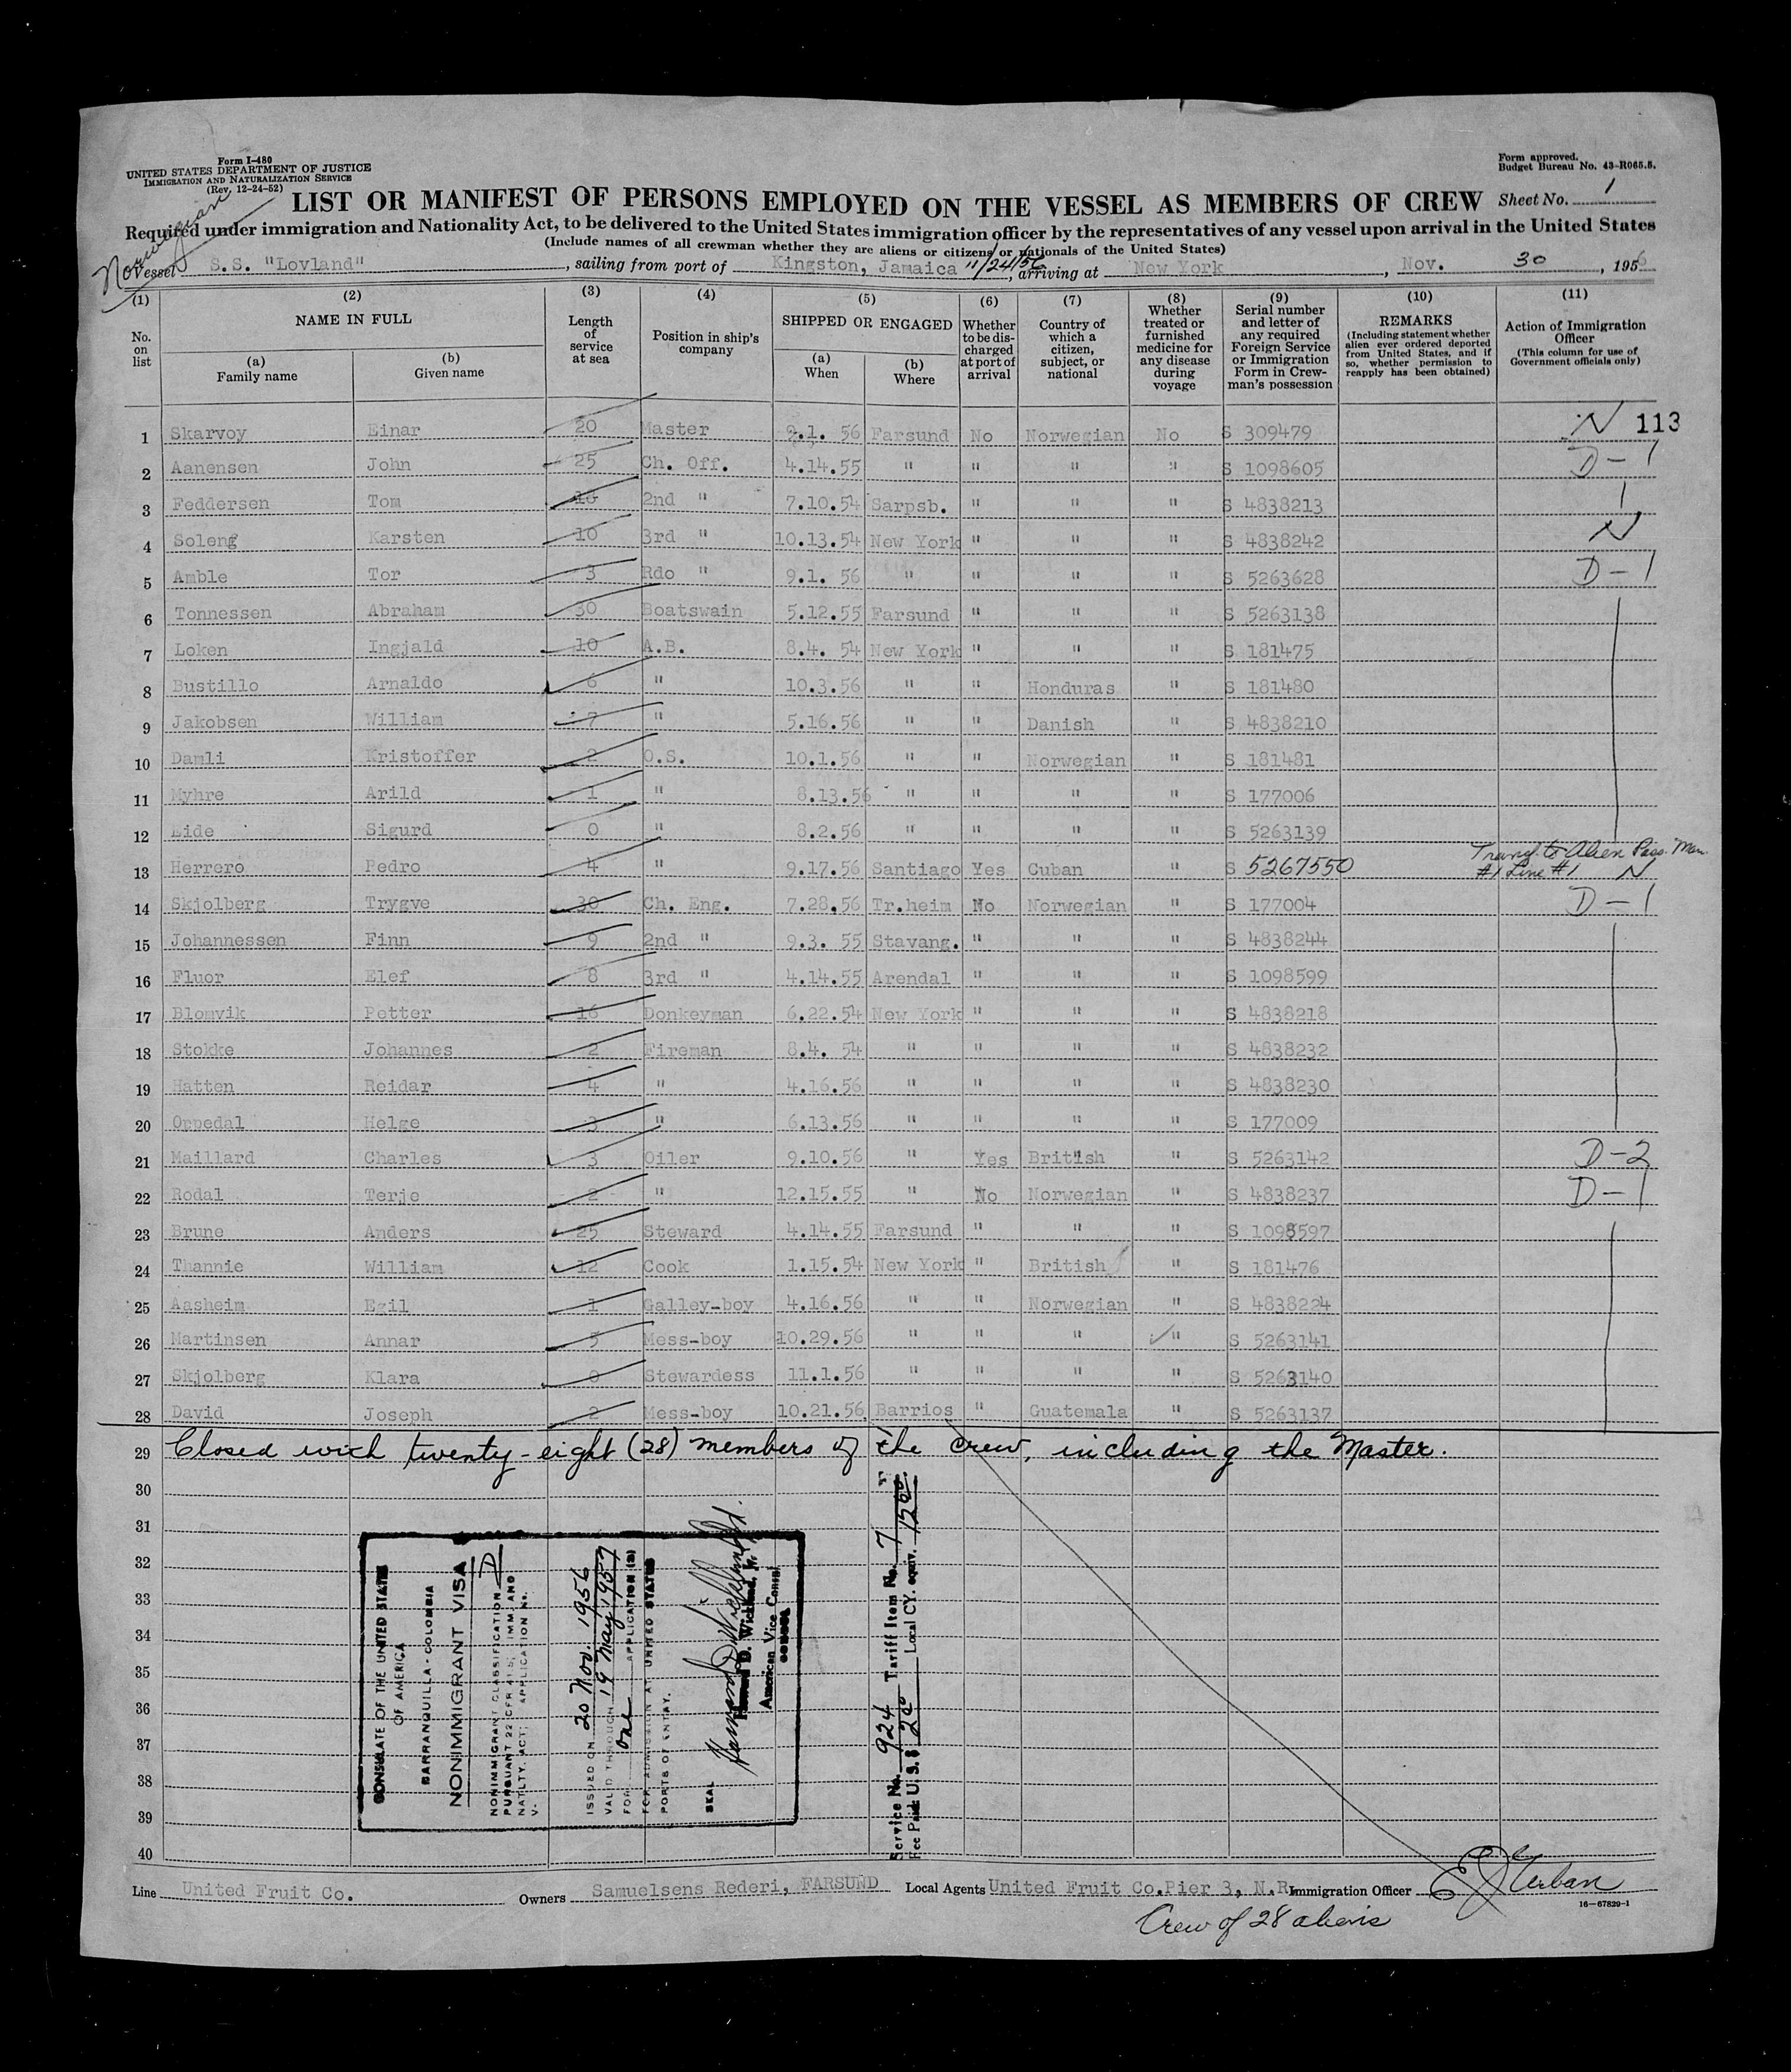 Form I-480
UNITED STATES DEPARTMENT OF JUSTICE
IMMIGRATION AND NATURALIZATION SERVICE
(Rev. 12-24-52)
Form approved.
Budget Bureau No. 43-R065.5.
LIST OR MANIFEST OF PERSONS EMPLOYED ON THE VESSEL AS MEMBERS OF CREW Sheet No. 1
Required under immigration and Nationality Act, to be delivered to the United States immigration officer by the representatives of any vessel upon arrival in the United States
(Include names of all crewman whether they are aliens or citizens or nationals of the United States)
Norwegian
Vessel S.S. "Lovland", sailing from port of Kingston, Jamaica 11/24/56, arriving at New York, Nov. 30, 1956
(1) (2) (3) (4) (5) (6) (7) (8) (9) (10) (11)
No. on list
NAME IN FULL
(a) Family name
(b) Given name
Length of service at sea
Position in ship's company
SHIPPED OR ENGAGED
(a) When
(b) Where
Whether to be discharged at port of arrival
Country of which a citizen, subject, or national
Whether treated or furnished medicine for any disease during voyage
Serial number and letter of any required Foreign Service or Immigration Form in Crewman's possession
REMARKS
(Including statement whether alien ever ordered deported from United States, and if so, whether permission to reapply has been obtained)
Action of Immigration Officer
(This column for use of Government officials only)
1 Skarvoy Einar 20 Master 9.1. 56 Farsund No Norwegian No S 309479 N 113
2 Aanensen John 25 Ch. Off. 4.14.55 " " " " S 1098605 D-1
3 Feddersen Tom 2nd " 7.10.54 Sarpsb. " " " S 4838213 1
4 Soleng Karsten 10 3rd " 10.13.54 New York " " " S 4838242 N
5 Amble Tor 3 Rdo " 9.1. 56 " " " " S 5263628 D-1
6 Tonnessen Abraham 30 Boatswain 5.12.55 Farsund " " " S 5263138
7 Loken Ingjald 10 A.B. 8.4. 54 New York " " " S 181475
8 Bustillo Arnaldo 6 " 10.3.56 " " Honduras " S 181480
9 Jakobsen William 7 " 5.16.56 " " Danish " S 4838210
10 Damli Kristoffer 2 O.S. 10.1.56 " " Norwegian " S 181481
11 Myhre Arild 1 " 8.13.56 " " " " S 177006
12 Eide Sigurd 0 " 8.2.56 " " " " S 5263139
13 Herrero Pedro 4 " 9.17.56 Santiago Yes Cuban " S 5267550 Transf. to Alien Pass. Man. #1 Line #1 N
14 Skjolberg Trygve 30 Ch. Eng. 7.28.56 Tr.heim No Norwegian " S 177004 D-1
15 Johannessen Finn 9 2nd " 9.3. 55 Stavang. " " " S 4838244
16 Fluor Elef 8 3rd " 4.14.55 Arendal " " " S 1098599
17 Blomvik Petter 16 Donkeyman 6.22.54 New York " " " S 4838218
18 Stokke Johannes 2 Fireman 8.4. 54 " " " " S 4838232
19 Hatten Reidar 4 " 4.16.56 " " " " S 4838230
20 Oppedal Helge 3 " 6.13.56 " " " " S 177009
21 Maillard Charles 3 Oiler 9.10.56 " Yes British " S 5263142 D-2
22 Rodal Terje 2 " 12.15.55 " No Norwegian " S 4838237 D-1
23 Brune Anders 25 Steward 4.14.55 Farsund " " " S 1098597
24 Thannie William 12 Cook 1.15.54 New York " British " S 181476
25 Aasheim Egil 1 Galley-boy 4.16.56 " " Norwegian " S 4838224
26 Martinsen Annar 5 Mess-boy 10.29.56 " " " " S 5263141
27 Skjolberg Klara 0 Stewardess 11.1.56 " " " " S 5263140
28 David Joseph 2 Mess-boy 10.21.56 Barrios " Guatemala " S 5263137
29 Closed with twenty-eight (28) members of the crew, including the Master.
30
31
32
33
34
35
36
37
38
39
40
CONSULATE OF THE UNITED STATES
OF AMERICA
BARRANQUILLA-COLOMBIA
NONIMMIGRANT VISA
NONIMMIGRANT CLASSIFICATION D
PURSUANT 22 CFR 41.5; IMM. AND
NATLTY. ACT; APPLICATION No.
V-
ISSUED ON 20 Nov. 1956
VALID THROUGH 19 May 1957
FOR one APPLICATION (S)
FOR ADMISSION AT UNITED STATES
PORTS OF ENTRY.
SEAL
American Vice Consul
Service No. 924 Tariff Item No. 7
Fee Paid: U. S. $ 2.00 Local CY. equiv.
Line United Fruit Co. Owners Samuelsens Rederi, FARSUND Local Agents United Fruit Co. Pier 3, N.R. Immigration Officer
16-67829-1
Crew of 28 aliens